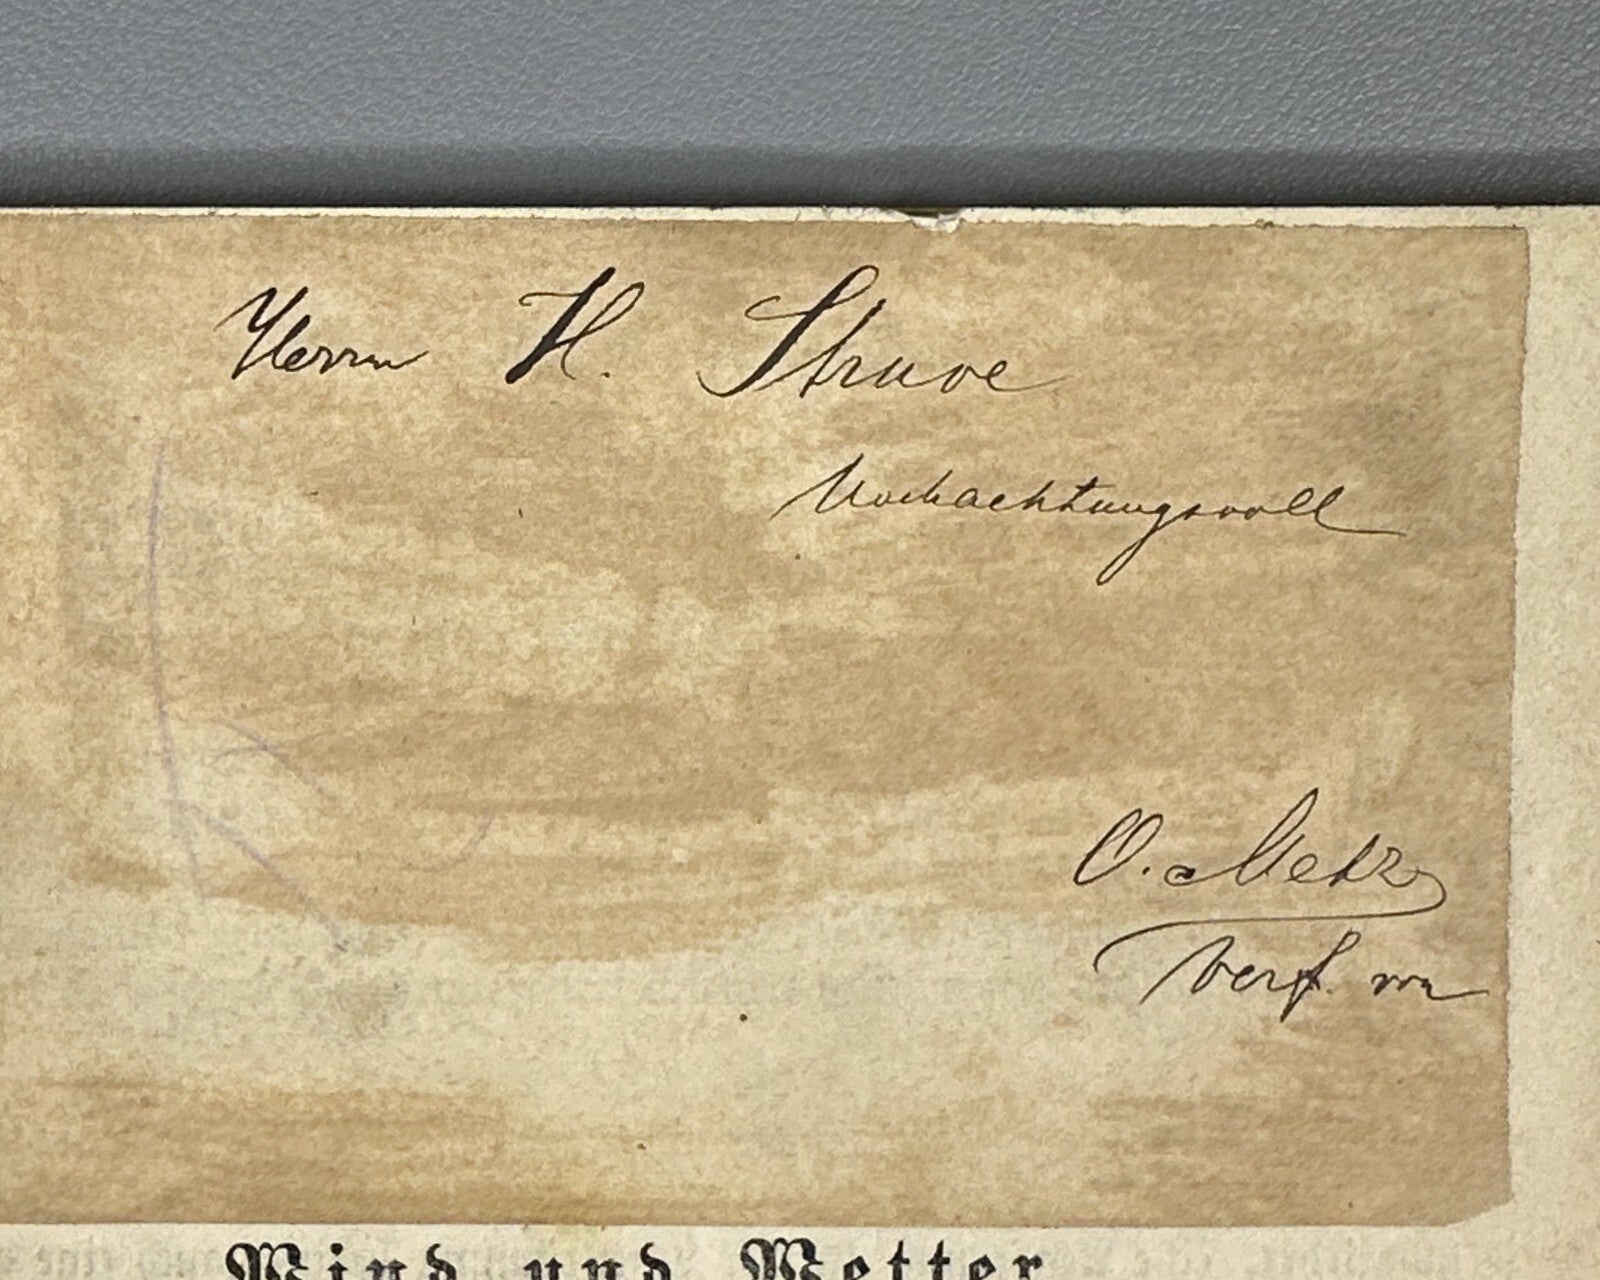 Herrn H. Struve
Hochachtungsvoll
O. Metz
Verf. von
Wind und Wetter